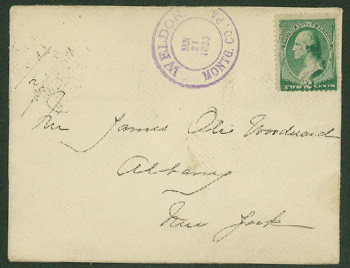 WELDON, PA.
JAN
21
MONTG. CO.
TWO 2 CENTS
Mr James Otis Woodward
Albany
New York